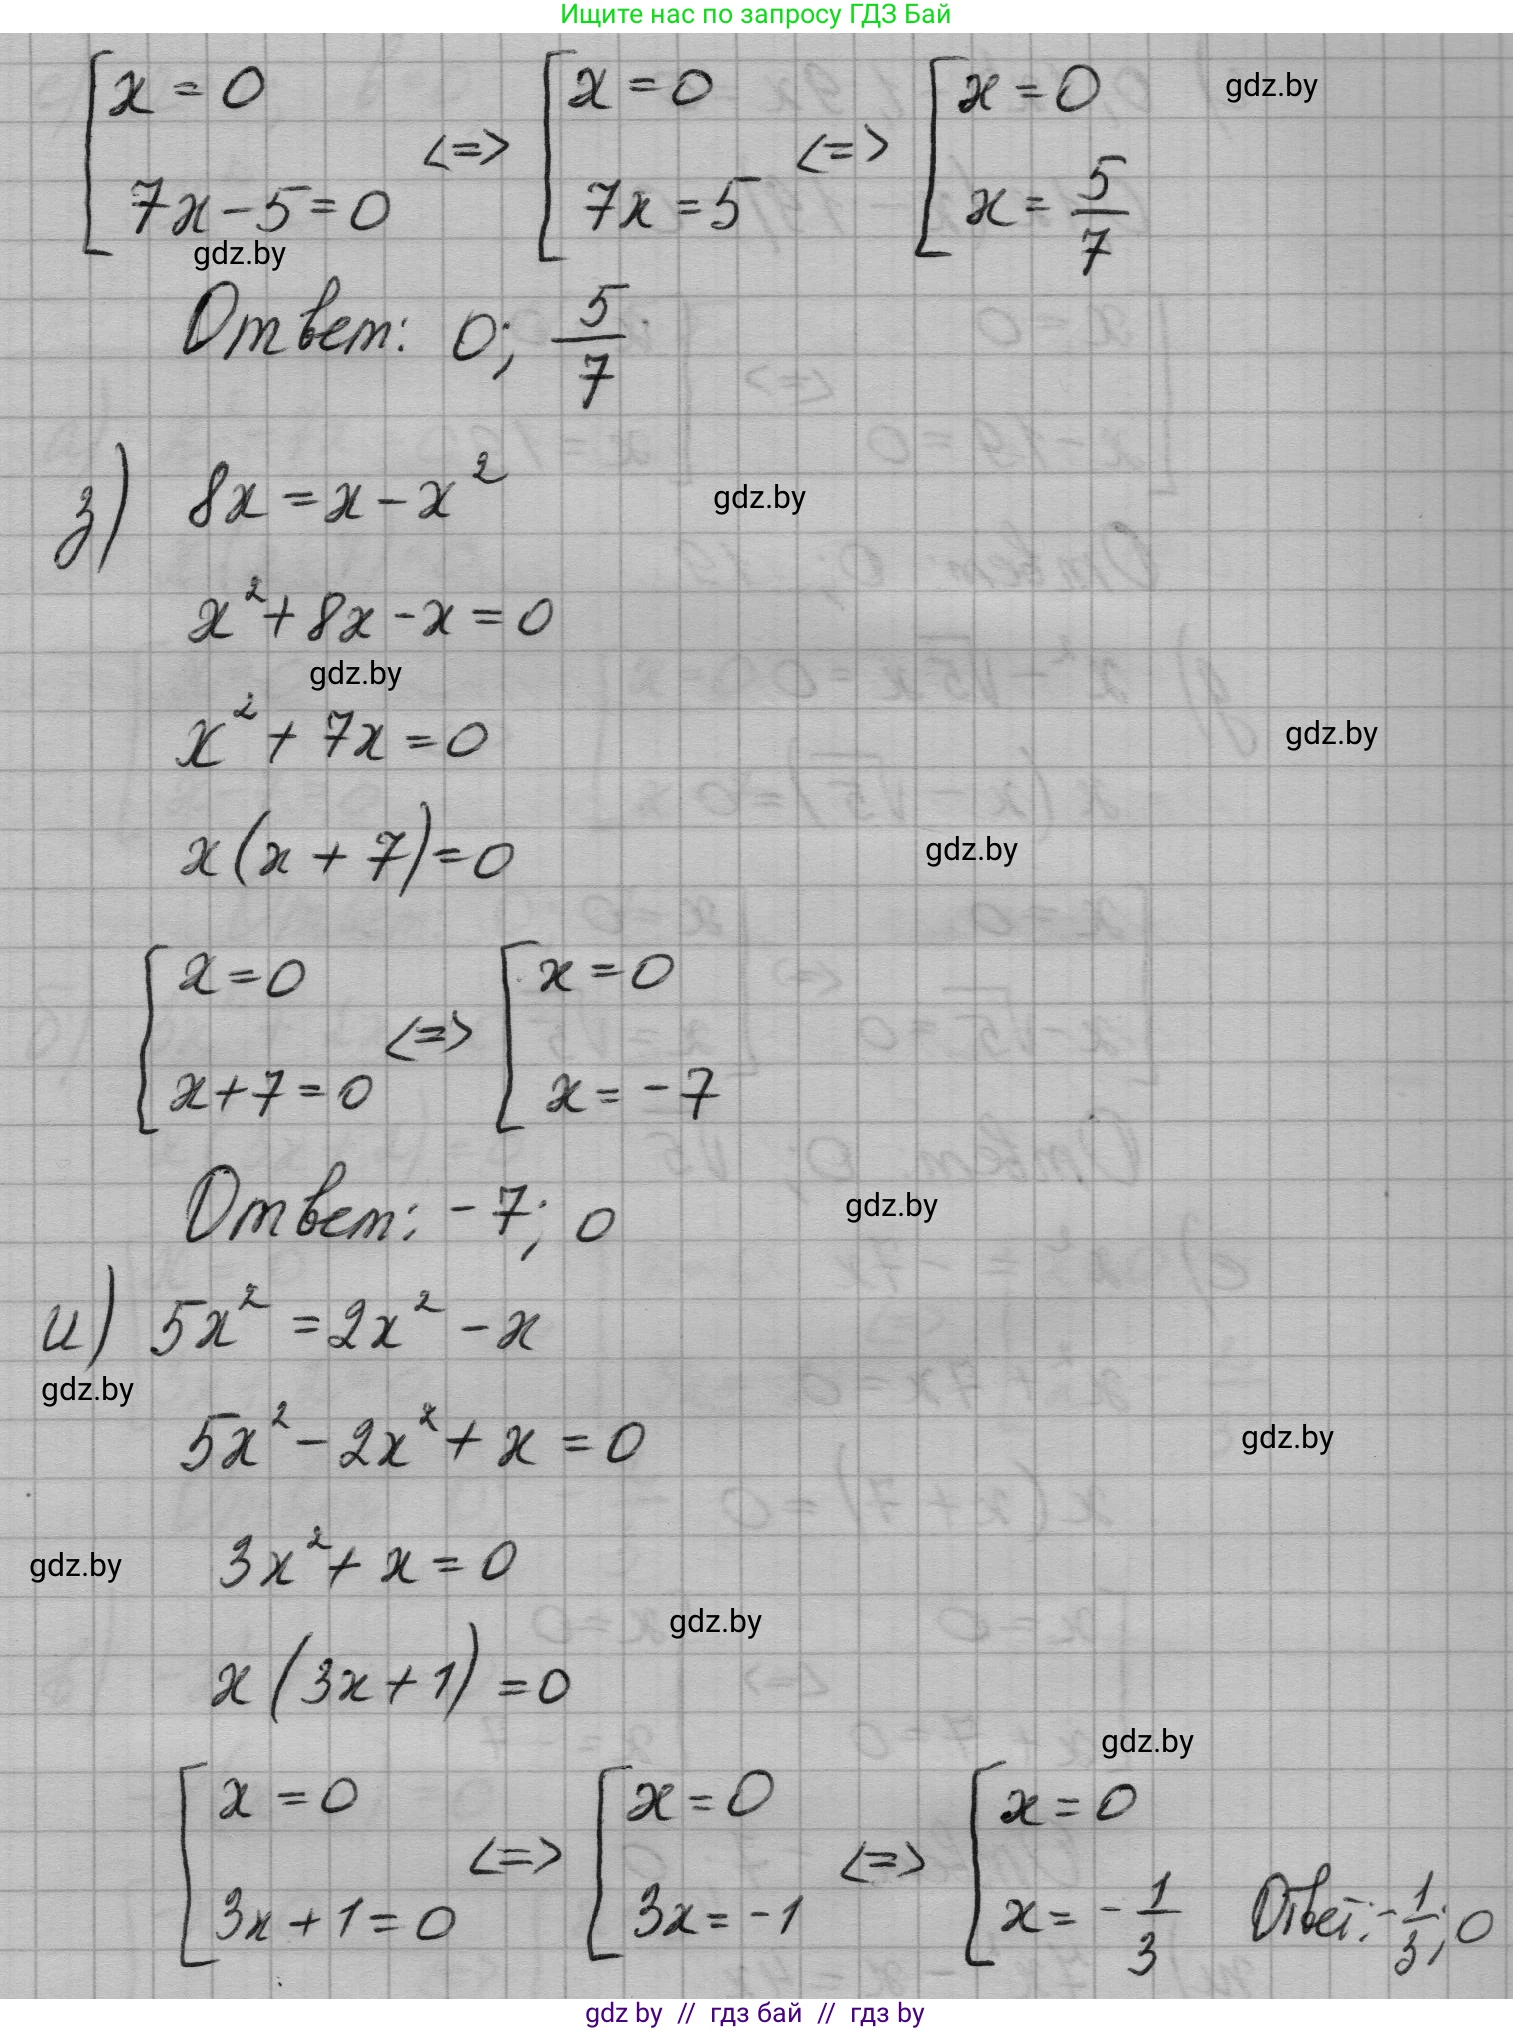 Ищите нас по запросу ГДЗ Бай
[x = 0 <=> [x = 0 <=> [x = 0
gdz.by
7x - 5 = 0 7x = 5 x = 5/7
gdz.by
Ответ: 0; 5/7
з) 8x = x - x²
gdz.by
x² + 8x - x = 0
gdz.by
x² + 7x = 0
gdz.by
x(x + 7) = 0
gdz.by
[x = 0 <=> [x = 0
x + 7 = 0 x = -7
Ответ: -7; 0
gdz.by
и) 5x² = 2x² - x
gdz.by
5x² - 2x² + x = 0
gdz.by
3x² + x = 0
gdz.by
gdz.by
x(3x + 1) = 0
gdz.by
[x = 0 <=> [x = 0 <=> [x = 0
3x + 1 = 0 3x = -1 x = -1/3 Ответ: -1/3; 0
gdz by // гдз бай // гдз by